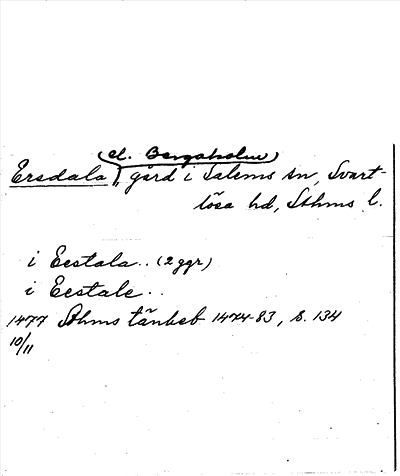 (el. Bergaholm)
Ersdala, gård i Salems sn, Svart-
lösa hd, Sthms l.
i Eestala.. (2 ggr)
i Eestale..
1477 Sthms tänkeb 1474-83, s. 134
10/11